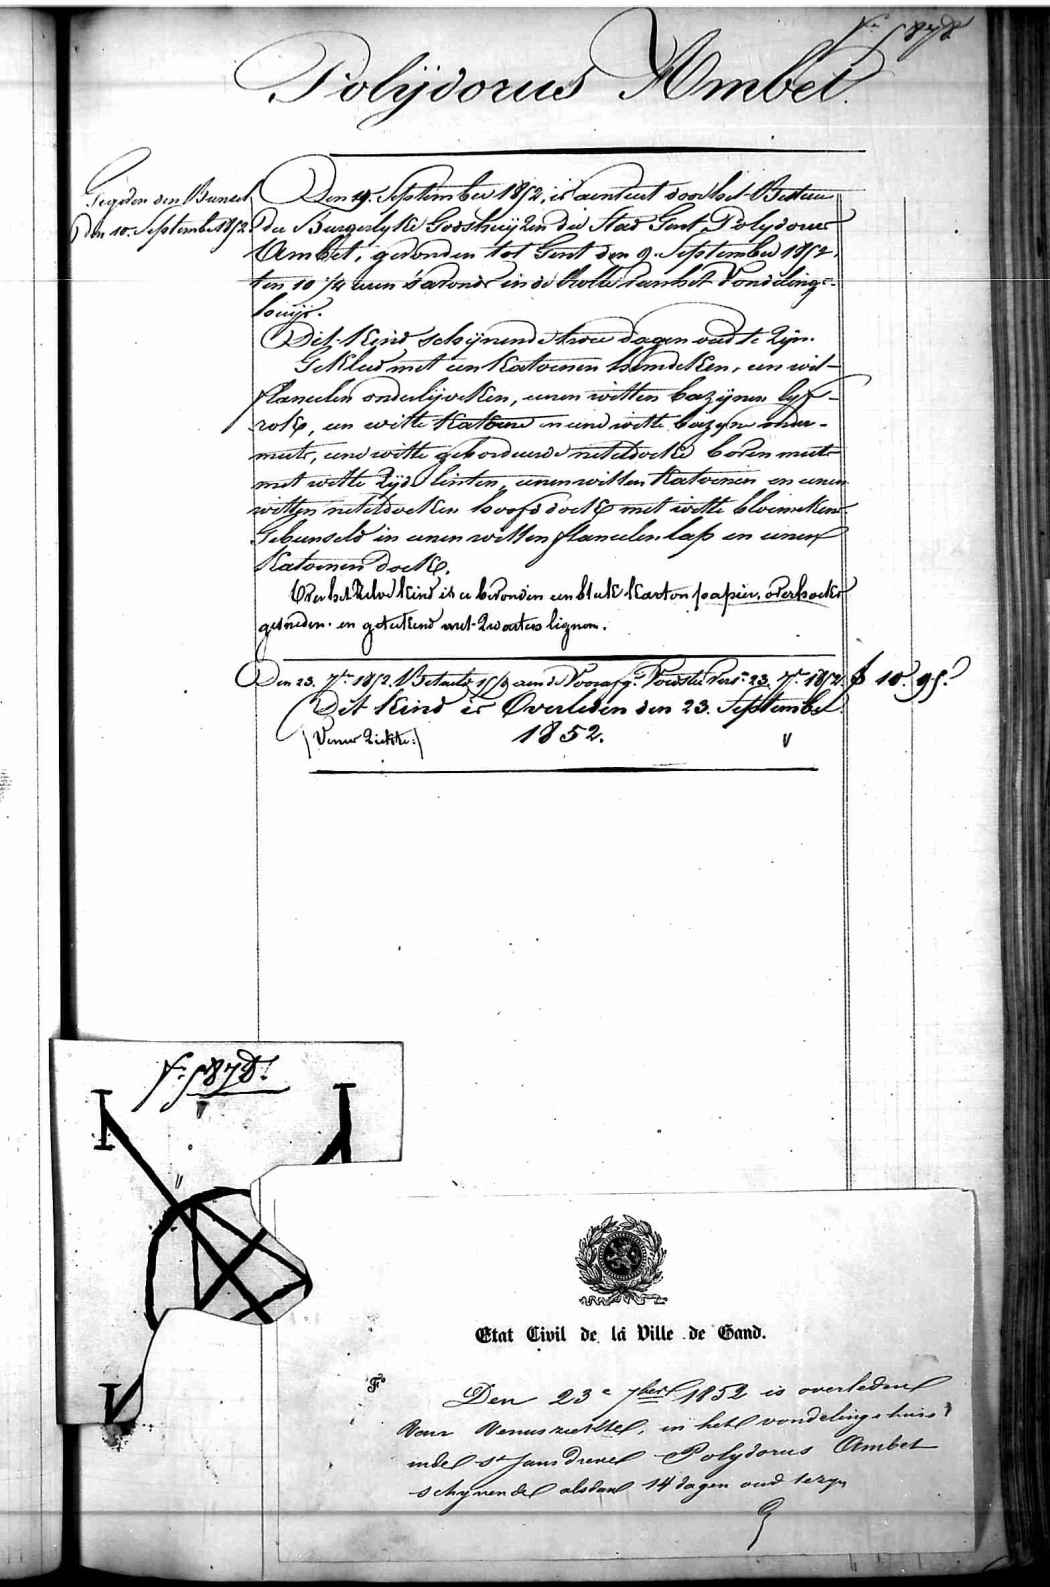 fo. 5878
Polÿdorus Ambet.
Gegeven den Buurel
den 10. September 1852.
Den 9. September 1852, is aenveert door het Bestuer
der Burgerlyke Godshuijzen der Stad Gent, Polydorus
Ambet, gevonden tot Gent den 9. September 1852,
ten 10 1/4 uren s'avonds in de Rolle van het Vondeling-
huijs.
Dit Kind schijnende twee dagen oud te zijn.
Gekleed met een Katoenen hemdeken, een wit-
flaneelen onderlijveken, eenen witten bazijnen lijf-
rok, en witte Katoene en eene witte bazyne onder-
muts, eene witte geborduurde neteldoeke boven muts
met witte Zijde linten, eenen witten Katoenen en eenen
witten neteldoeken hoofddoek met witte bloemeken.
Gebunseld in eenen witten flaneelen lap en eenen
Katoenen doek.
Over het Zelve kind is er bevonden een stuk karton papier, overhoeks
gesneden en geteekend met zwarte lignen.
Den 23. 7re 1852. Betaeld aen de Voorafg. Voedster vers. 23. 7re 1852. f 10. 95.
Dit Kind is Overleden den 23. September
1852.
(Venus Ziekte:)
fo. 5878.
Etat Civil de la Ville de Gand.
Fo
Den 23e 7ber 1852 is overleden
van Venusziekte, in het vondelingshuis
indel St Jansdreve Polydorus Ambet
schynende alsdan 14 dagen oud te zyn